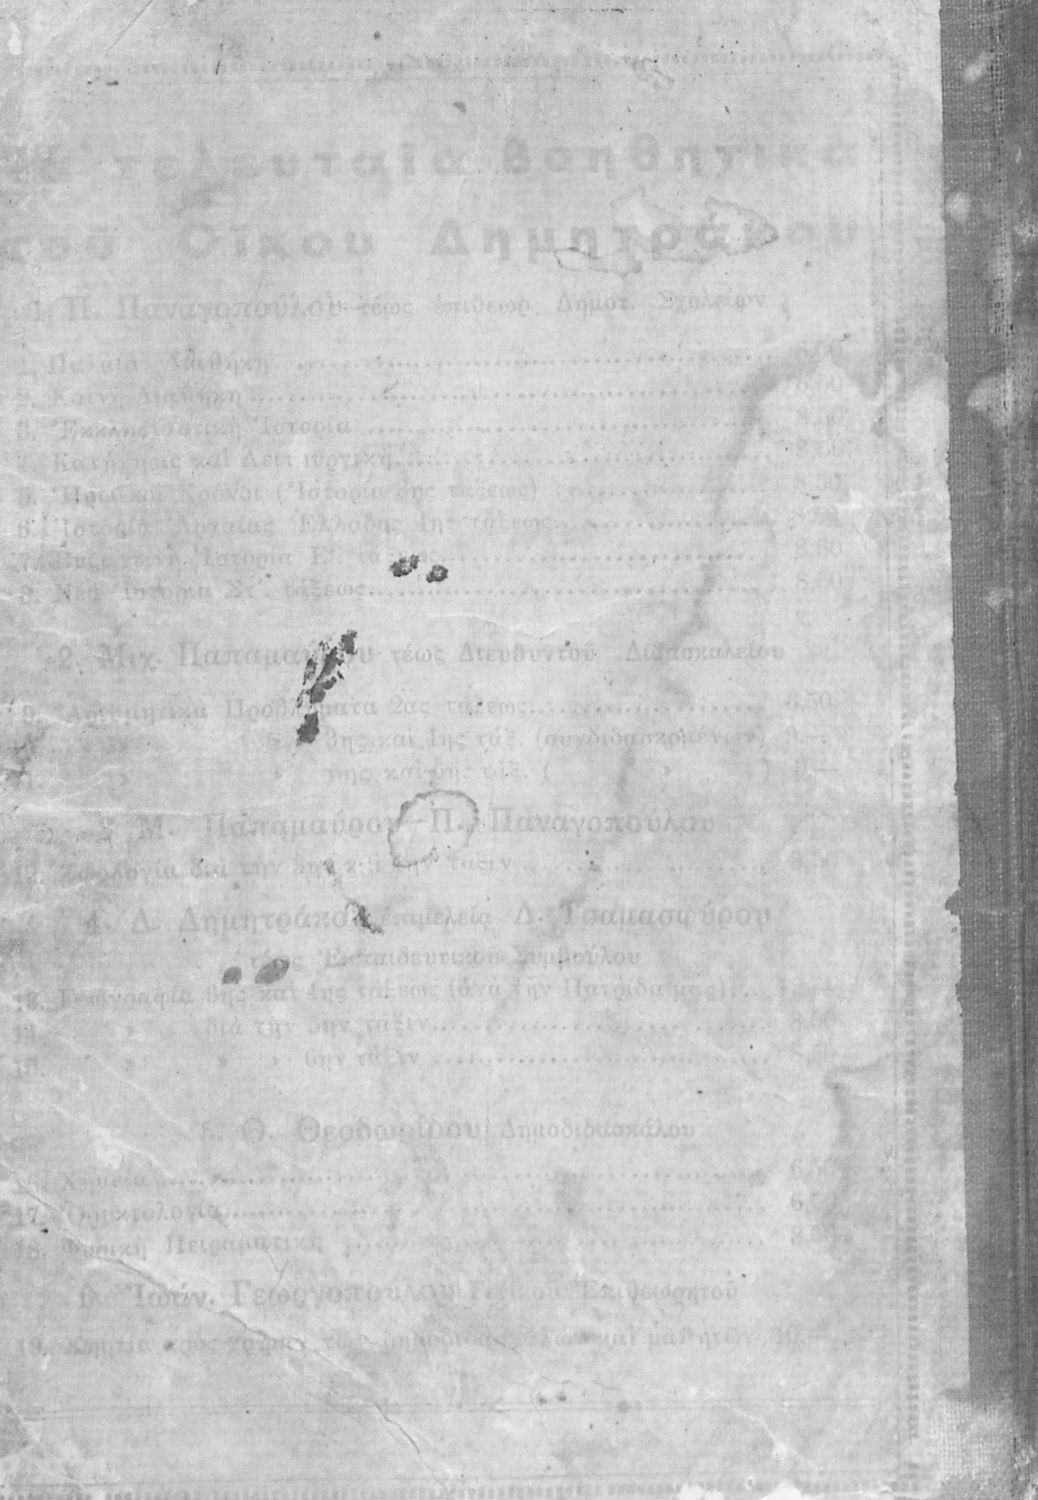 Τὰ τελευταῖα βοηθητικὰ
τοῦ Οἴκου Δημητράκου
1. Π. Παναγοπούλου τέως ἐπιθεωρ. Δημοτ. Σχολείων
1. Παλαιὰ Διαθήκη ........ 8.50
2. Καινὴ Διαθήκη ........ 8.50
3. Ἐκκλησιαστικὴ Ἱστορία ........ 8.50
4. Κατήχησις καὶ Λειτουργικὴ ........ 8.50
5. Ἡρωϊκοὶ Χρόνοι (Ἱστορία 3ης τάξεως) ........ 8.50
6. Ἱστορία Ἀρχαίας Ἑλλάδος 4ης τάξεως ........ 8.50
7. Βυζαντινὴ Ἱστορία Ε΄. τάξεως ........ 8.50
8. Νέα Ἱστορία ΣΤ΄. τάξεως ........ 8.50
2. Μιχ. Παπαμαύρου τέως Διευθυντοῦ Διδασκαλείου
9. Ἀριθμητικὰ Προβλήματα 2ας τάξεως ........ 6.50
» » 3ης καὶ 4ης τάξ. (συνδιδασκομένων) 9.—
11. » » 5ης καὶ 6ης τάξ. ( » ) 9.—
3 Μ. Παπαμαύρου—Π. Παναγοπούλου
12. Ζωολογία διὰ τὴν 5ην καὶ 6ην τάξιν ........ 8.50
4. Δ. Δημητράκου ἐπιμελείᾳ Δ. Τσαμασφύρου
τέως Ἐκπαιδευτικοῦ Συμβούλου
13. Γεωγραφία 3ης καὶ 4ης τάξεως (ἀνὰ τὴν Πατρίδα μας) ....
14. » διὰ τὴν 5ην τάξιν ........ 8.50
15. » » » 6ην τάξιν ........ 8.50
5. Θ. Θεοδωρίδου Δημοδιδασκάλου
16. Χημεία ........ 6.50
17. Ὀρυκτολογία ........ 6.50
18. Φυσικὴ Πειραματικὴ ........ 8.50
6. Ἰωάν. Γεωργοπούλου Γενικοῦ Ἐπιθεωρητοῦ
19. Χημεία πρὸς χρῆσιν τῶν δημοδιδασκάλων καὶ μαθητῶν 10.—